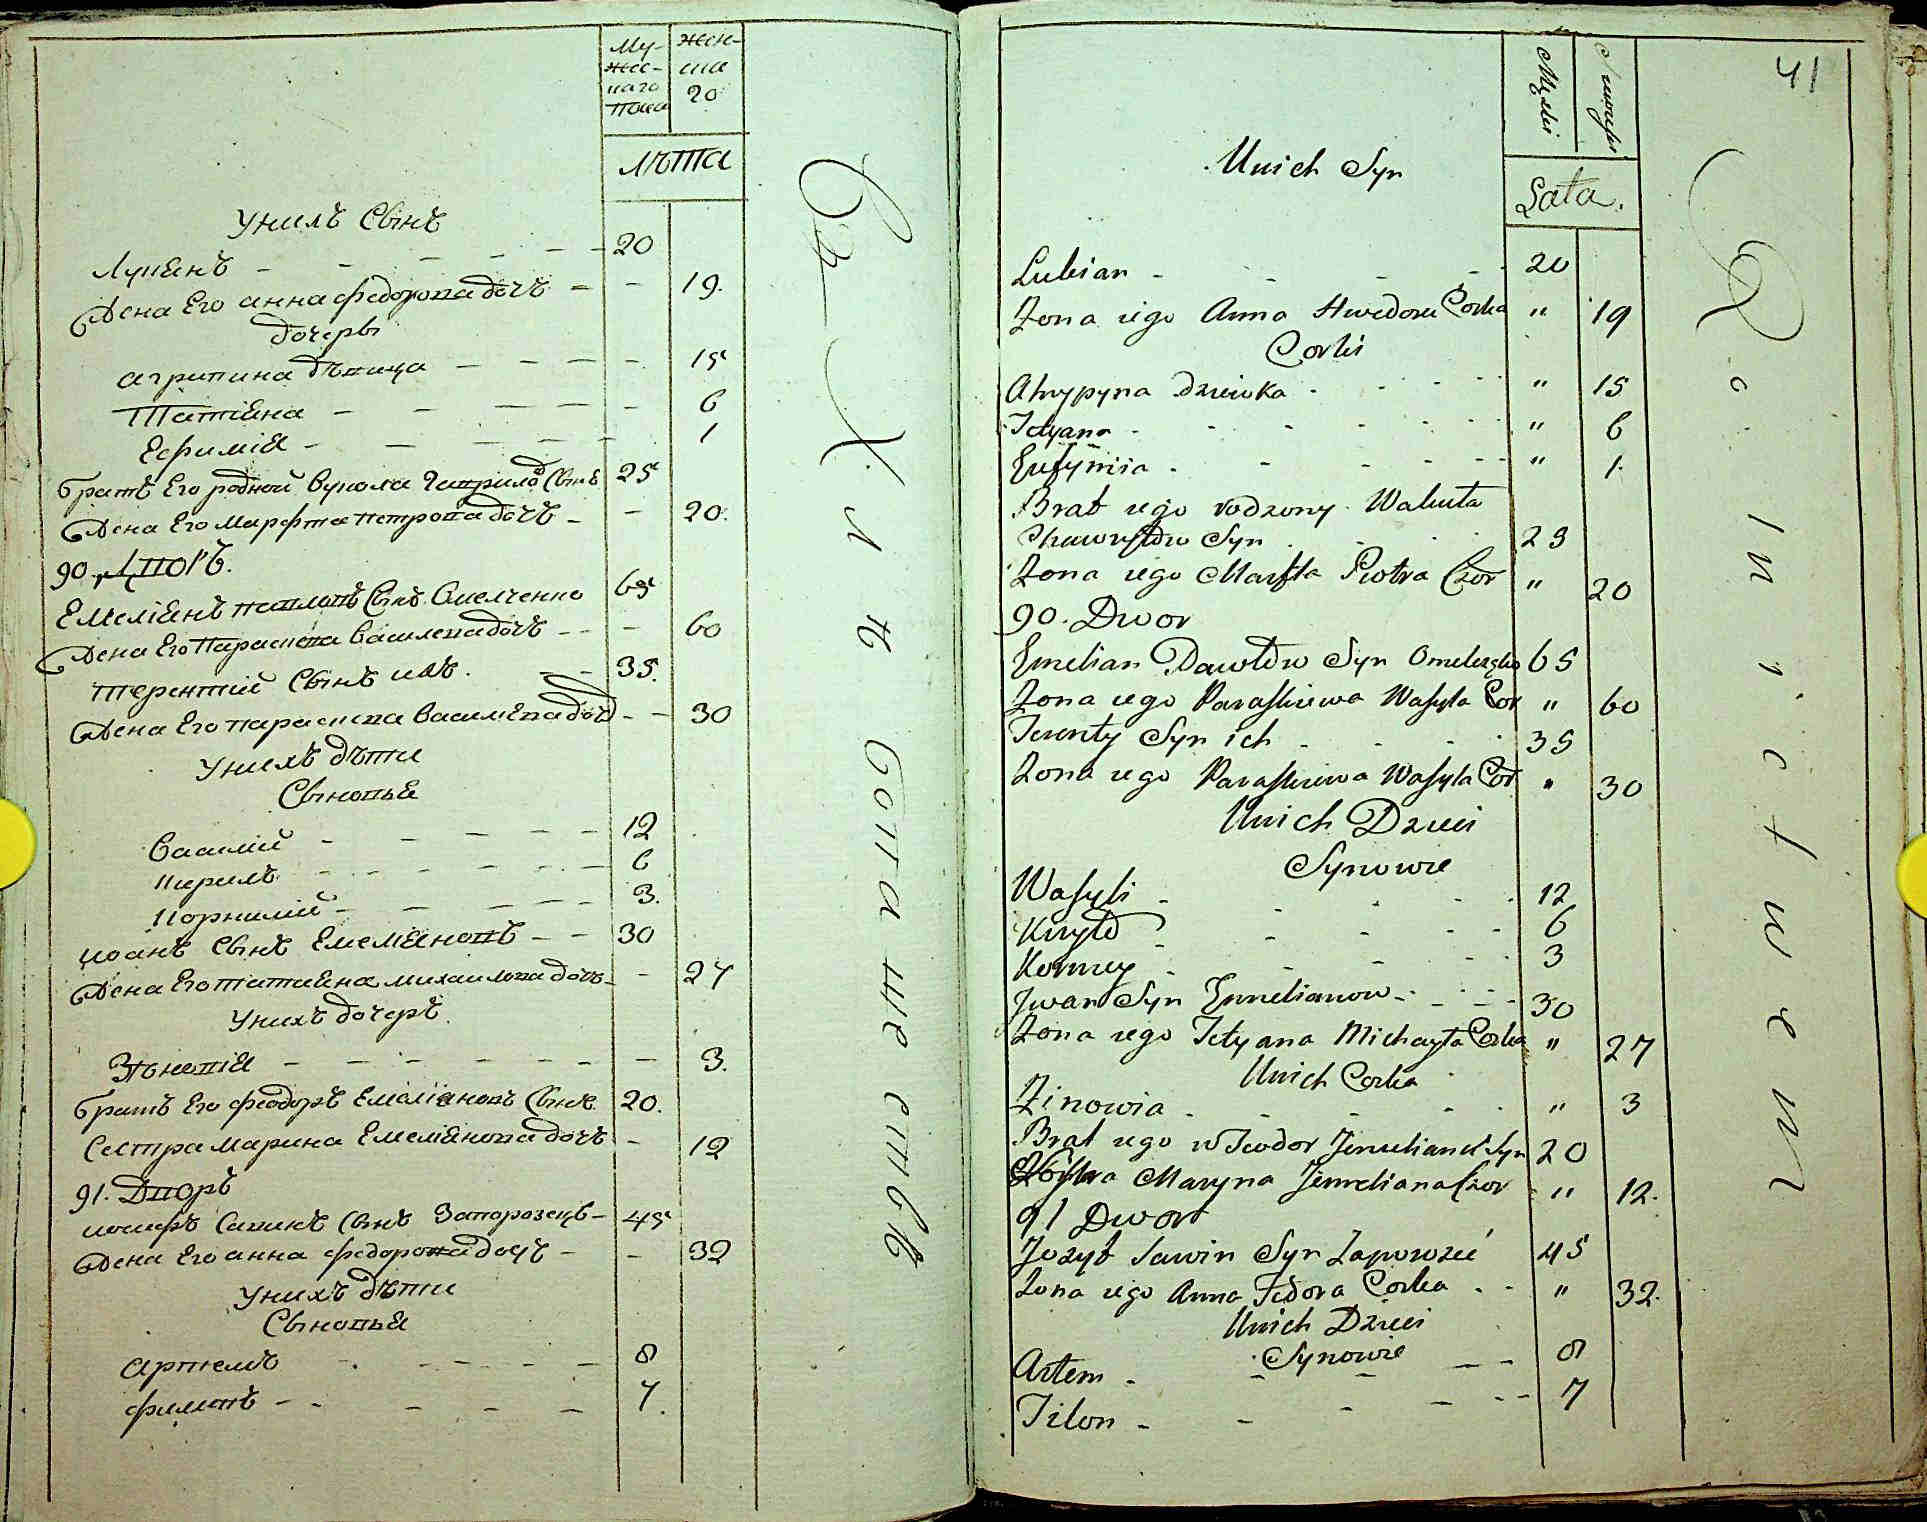 Му-
жес-
каго
Пола
жен-
ска
20
лѣта
Унихъ Сынъ
Лукіянъ 20
Жена Его анна федорова дочъ 19.
дочеры
агрипина дѣвица 15
Татіяна 6
Ефимія 1
братъ Его родной Вукола Гаврило Сынъ 25
Жена Его Марфта петрова дочъ 20.
90. Дворъ.
Емеліянъ павловъ Сынъ Омелченко 65
Жена Его Параскева Василева дочъ 60
терентій Сынъ ихъ. 35.
Жена Его параскева Василева доч 30
Унихъ дѣти
Сыновья
Василій 12
Кирилъ 6
Корнилій 3.
иоанъ Сынъ Емеліяновъ 30
Жена Его татияна михаилова дочъ 27
Унихъ дочеръ
Зѣновія 3.
братъ Его феодоръ Емеліяновъ Сынъ. 20.
Сестра Марина Емеліянова дочъ 12
91. Дворъ
иосифъ Савинъ Сынъ Запорожецъ 45
Жена Его анна федорова дочъ 32
Унихъ дѣти
Сыновья
артемъ 8
филипъ 7.
41
Męskiej
Lata.
Unich Syn
Lukian 20
Zona iego Anna Hwedora Corka " 19
Corki
Ahrypyna dziewka " 15
Tetyana " 6
Eufymiia " 1.
Brat iego rodzony Wakuła
Hawryłow Syn 25
Zona iego Marfta Piotra Czor " 20
90. Dwor
Emelian Pawłow Syn Omelczęko 65
Zona iego Paraskiewa Wasyla Cor " 60
Terenty Syn ich 35
Zona iego Paraskiewa Wasyla Cor " 30
Unich Dzieci
Synowie
Wasyli 12
Kiryło 6
Korniey 3
Jwan Syn Emelianow 30
Zona iego Tetyana Michayła Corka " 27
Unich Corka
Zinowia " 3
Brat iego Teodor Jemeliana Syn 20
Siostra Maryna Jemeliana Czor " 12.
91 Dwor
Jozyf Sawin Syn Zaporozeć 45
Zona iego Anna Fedora Corka " 32.
Unich Dzieci
Synowie
Artem 8
Filon 7